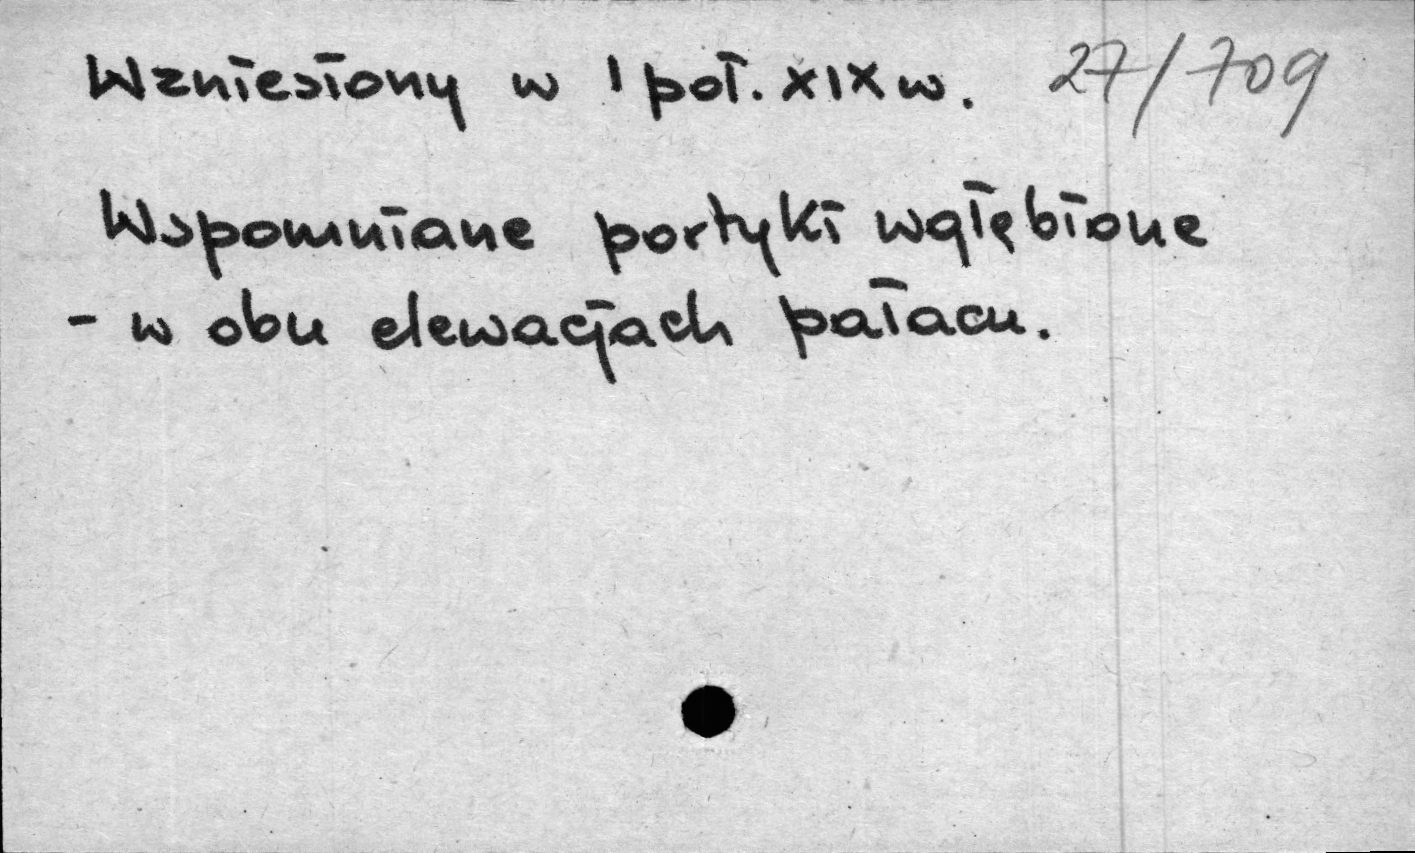 Wzniesiony w I poł. XIX w. 27/709
Wspomniane portyki wgłębione
- w obu elewacjach pałacu.